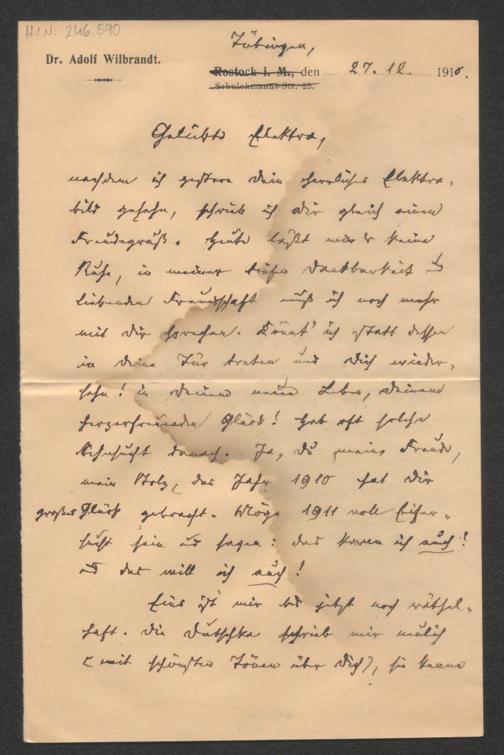 HIN: 246.590
Dr. Adolf Wilbrandt.
Tübingen,
Rostock i. M., den 27. 12. 1910.
Schliemanns-Str. 25.
Geliebte Elektra,
nachdem ich gestern dein herrliches Elektra-
bild gesehn, schrieb ich dir gleich einen
Freudegruß. Heute läßt mir's keine
Ruhe, in meiner tiefen Dankbarkeit u
liebenden Freundschaft muß ich noch mehr
mit dir sprechen. Könnt' ich statt dessen
in deine Tür treten und dich wieder-
sehn! in deinem neuen Leben, deinem
herzerfreuenden Glück! hab oft solche
Sehnsucht danach. Ja, du meine Freude,
mein Stolz, das Jahr 1910 hat dir
großes Glück gebracht. Möge 1911 voll Eifer-
sucht sein u sagen: das kann ich auch!
u das will ich auch!
Eins ist mir bis jetzt noch räthsel-
haft. Die Dutschke schrieb mir neulich
(mit schönsten Tönen über dich), sie kenne